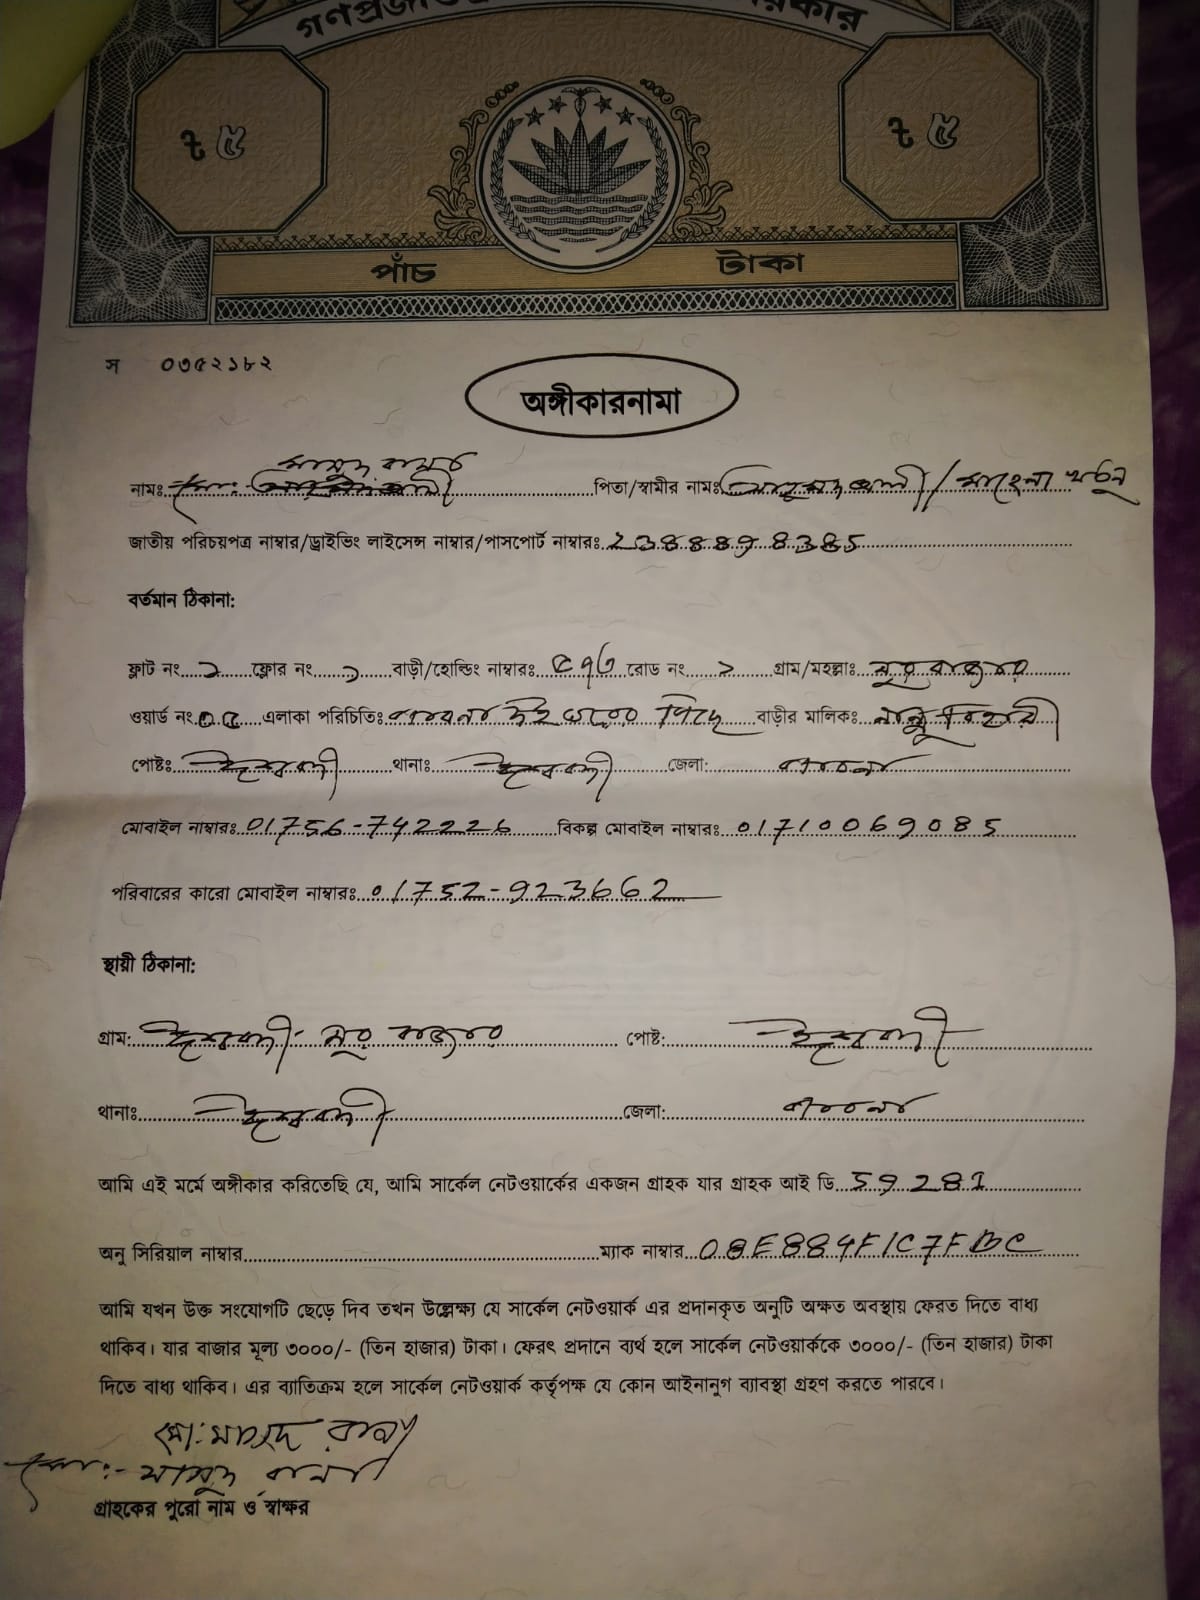 ৳ ৫
৳ ৫
পাঁচ টাকা
স ০৩৫২১৮২
অঙ্গীকারনামা
নামঃ মোঃ মাসুদ রানা পিতা/স্বামীর নামঃ
জাতীয় পরিচয়পত্র নাম্বার/ড্রাইভিং লাইসেন্স নাম্বার/পাসপোর্ট নাম্বারঃ
বর্তমান ঠিকানা:
ফ্লাট নং ১ ফ্লোর নং ১ বাড়ী/হোল্ডিং নাম্বারঃ রোড নং ১ গ্রাম/মহল্লাঃ নূর
ওয়ার্ড নং ০৫ এলাকা পরিচিতিঃ পিছে বাড়ীর মালিকঃ
পোষ্টঃ ঈশ্বরদী থানাঃ ঈশ্বরদী জেলা: পাবনা
মোবাইল নাম্বারঃ 01756-742226 বিকল্প মোবাইল নাম্বারঃ 01710069085
পরিবারের কারো মোবাইল নাম্বারঃ 01752-923662
স্থায়ী ঠিকানা:
গ্রাম: ঈশ্বরদী নূর পোষ্ট: ঈশ্বরদী
থানাঃ ঈশ্বরদী জেলা: পাবনা
আমি এই মর্মে অঙ্গীকার করিতেছি যে, আমি সার্কেল নেটওয়ার্কের একজন গ্রাহক যার গ্রাহক আই ডি 59281
অনু সিরিয়াল নাম্বার ম্যাক নাম্বার 08E884F1C7FBC
আমি যখন উক্ত সংযোগটি ছেড়ে দিব তখন উল্লেক্ষ্য যে সার্কেল নেটওয়ার্ক এর প্রদানকৃত অনুটি অক্ষত অবস্থায় ফেরত দিতে বাধ্য
থাকিব। যার বাজার মূল্য ৩০০০/- (তিন হাজার) টাকা। ফেরৎ প্রদানে ব্যর্থ হলে সার্কেল নেটওয়ার্ককে ৩০০০/- (তিন হাজার) টাকা
দিতে বাধ্য থাকিব। এর ব্যাতিক্রম হলে সার্কেল নেটওয়ার্ক কর্তৃপক্ষ যে কোন আইনানুগ ব্যাবস্থা গ্রহণ করতে পারবে।
মো: মাসুদ রানা
মোঃ- মাসুদ রানা
গ্রাহকের পুরো নাম ও স্বাক্ষর